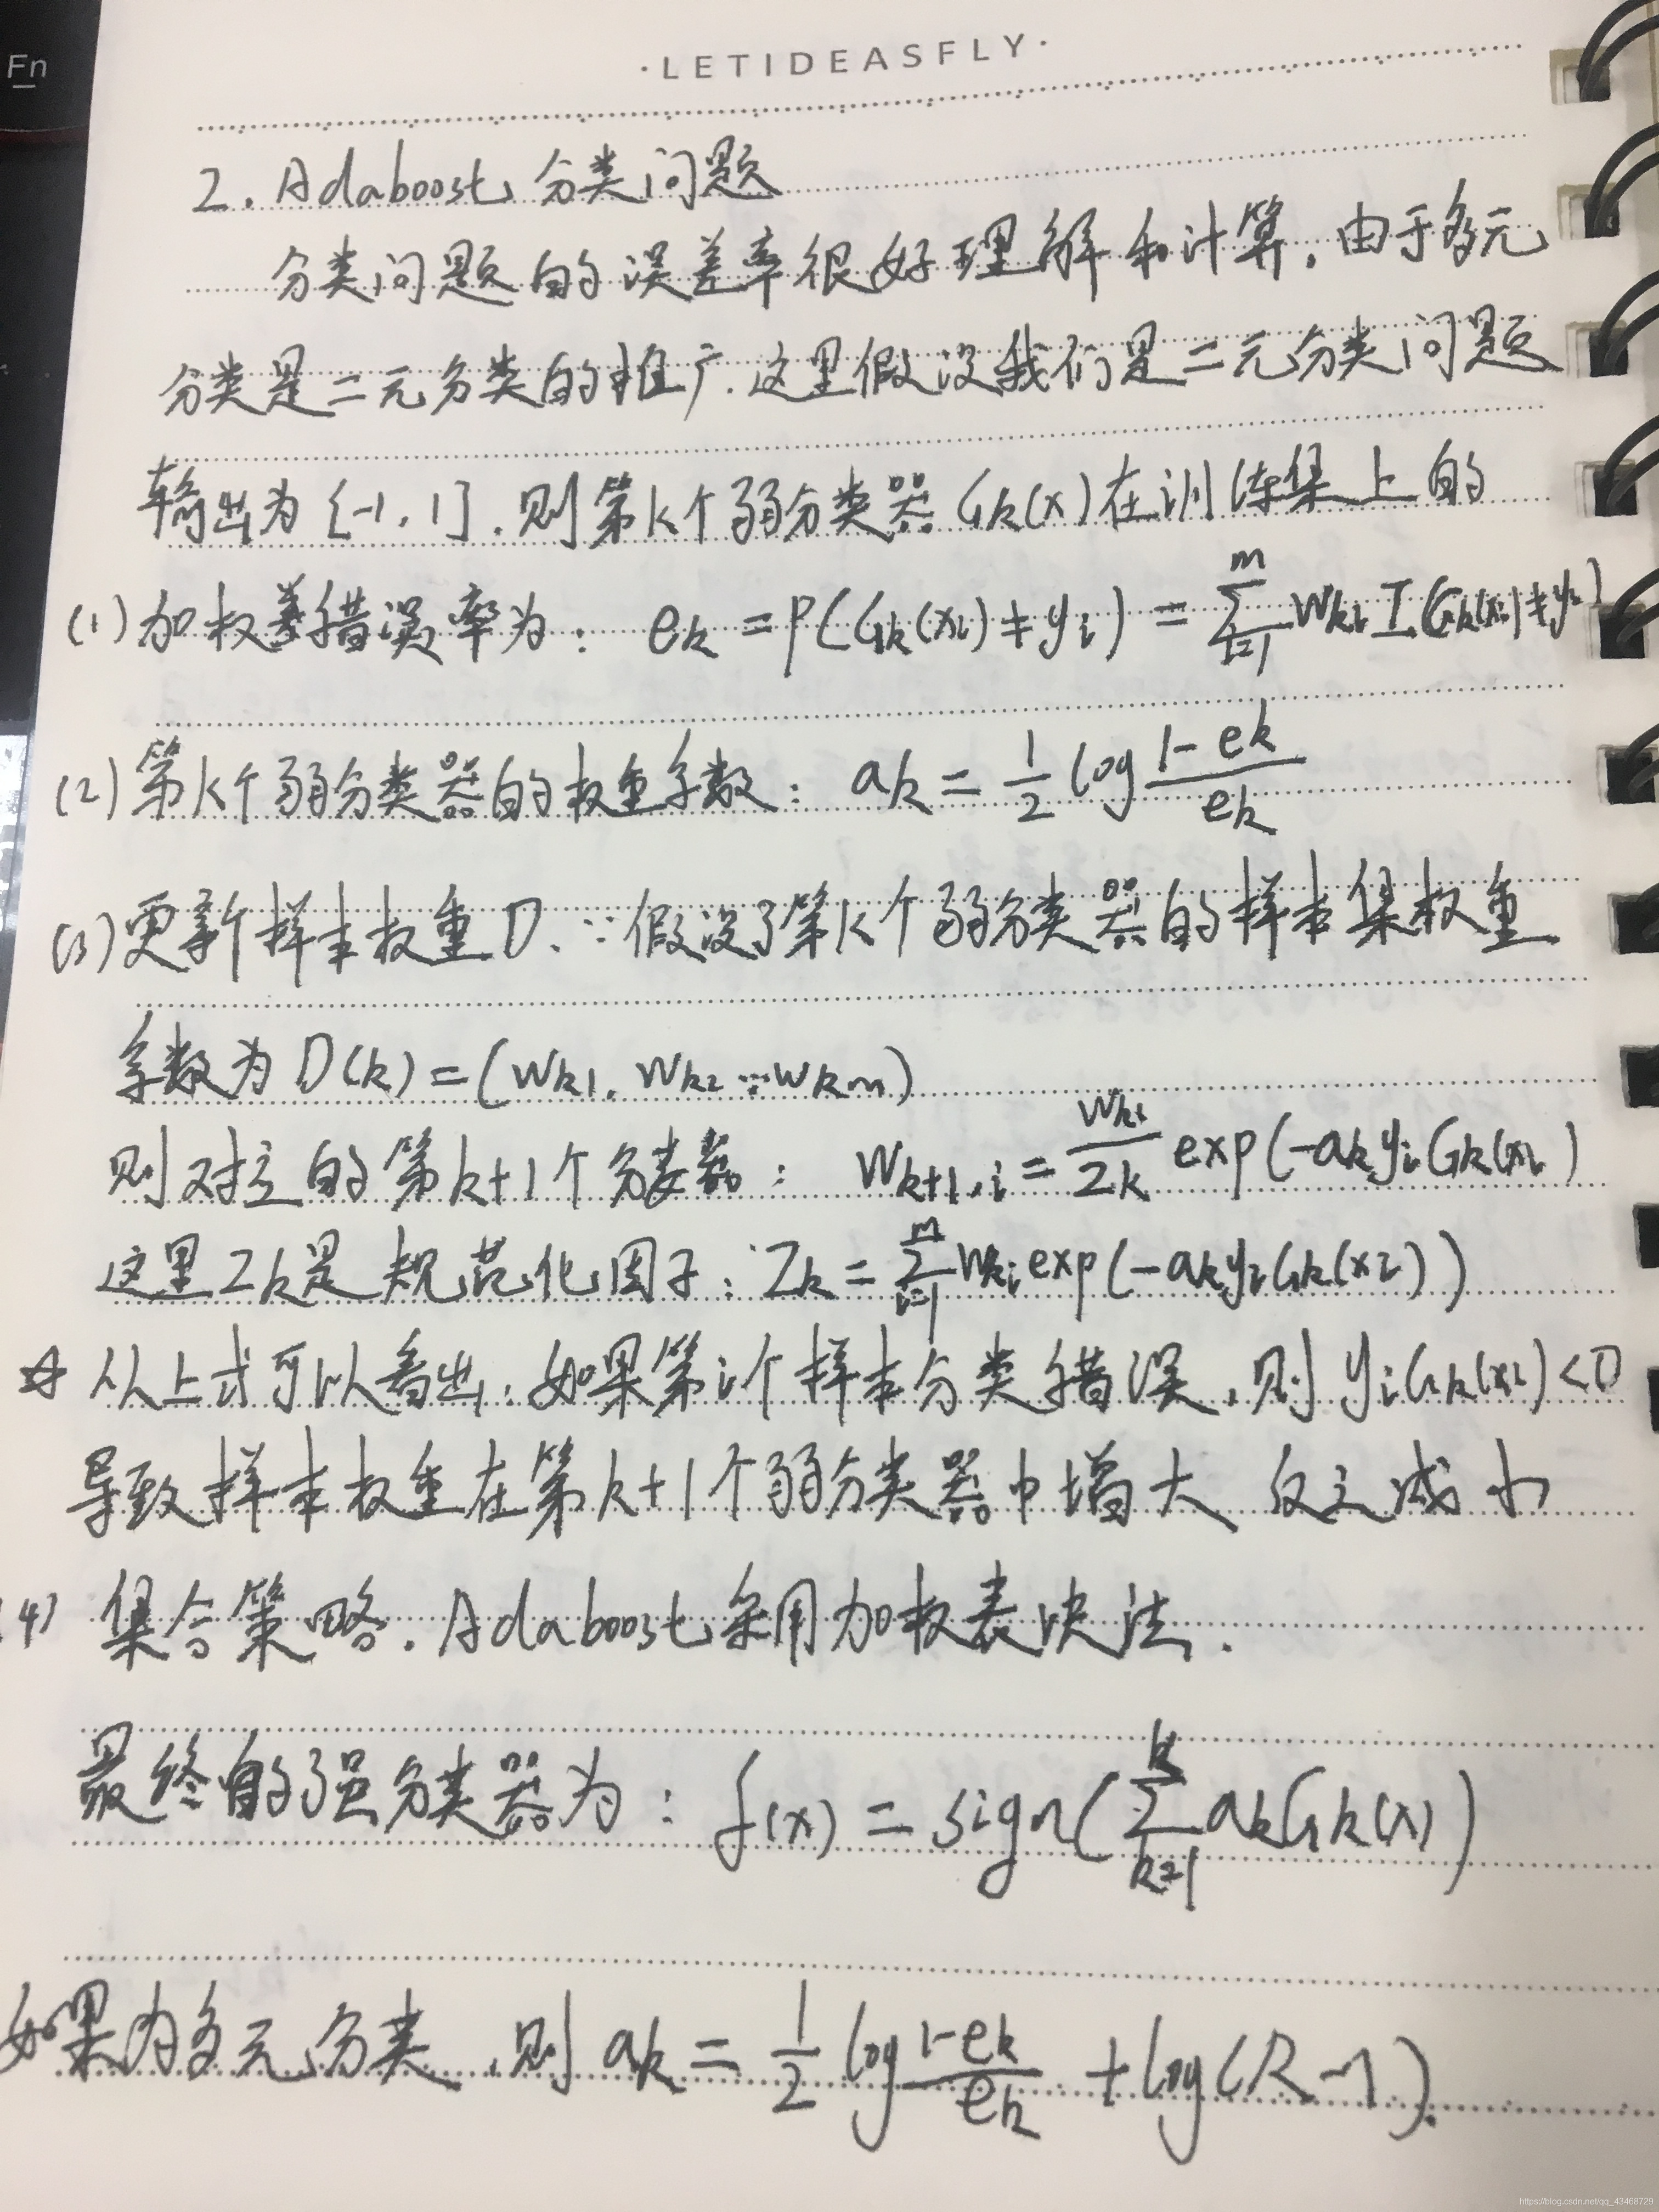 Fn
·LETIDEASFLY·
2. Adaboost 分类问题
分类问题的误差率很好理解和计算. 由于多元
分类是二元分类的推广. 这里假设我们是二元分类问题
输出为 {-1, 1}. 则第k个弱分类器 Gk(x) 在训练集上的
(1) 加权错误率为: ek = P(Gk(xi) ≠ yi) = Σ_{i=1}^{m} wki I(Gk(xi) ≠ yi)
(2) 第k个弱分类器的权重系数: ak = 1/2 log (1-ek)/ek
(3) 更新样本权重D. ∵假设了第k个弱分类器的样本集权重
系数为 D(k) = (wk1, wk2 … wkm)
则对应的第k+1个分类器: wk+1,i = wki/Zk exp(-ak yi Gk(xi)
这里Zk是规范化因子: Zk = Σ_{i=1}^{m} wki exp(-ak yi Gk(xi))
☆ 从上式可以看出: 如果第i个样本分类错误, 则 yi Gk(xi) <0
导致样本权重在第k+1个弱分类器中增大 反之减小
(4) 集合策略. Adaboost采用加权表决法.
最终的强分类器为: f(x) = sign(Σ_{k=1}^{K} ak Gk(x))
如果为多元分类, 则 ak = 1/2 log (1-ek)/ek + log(R-1).
https://blog.csdn.net/qq_43468729